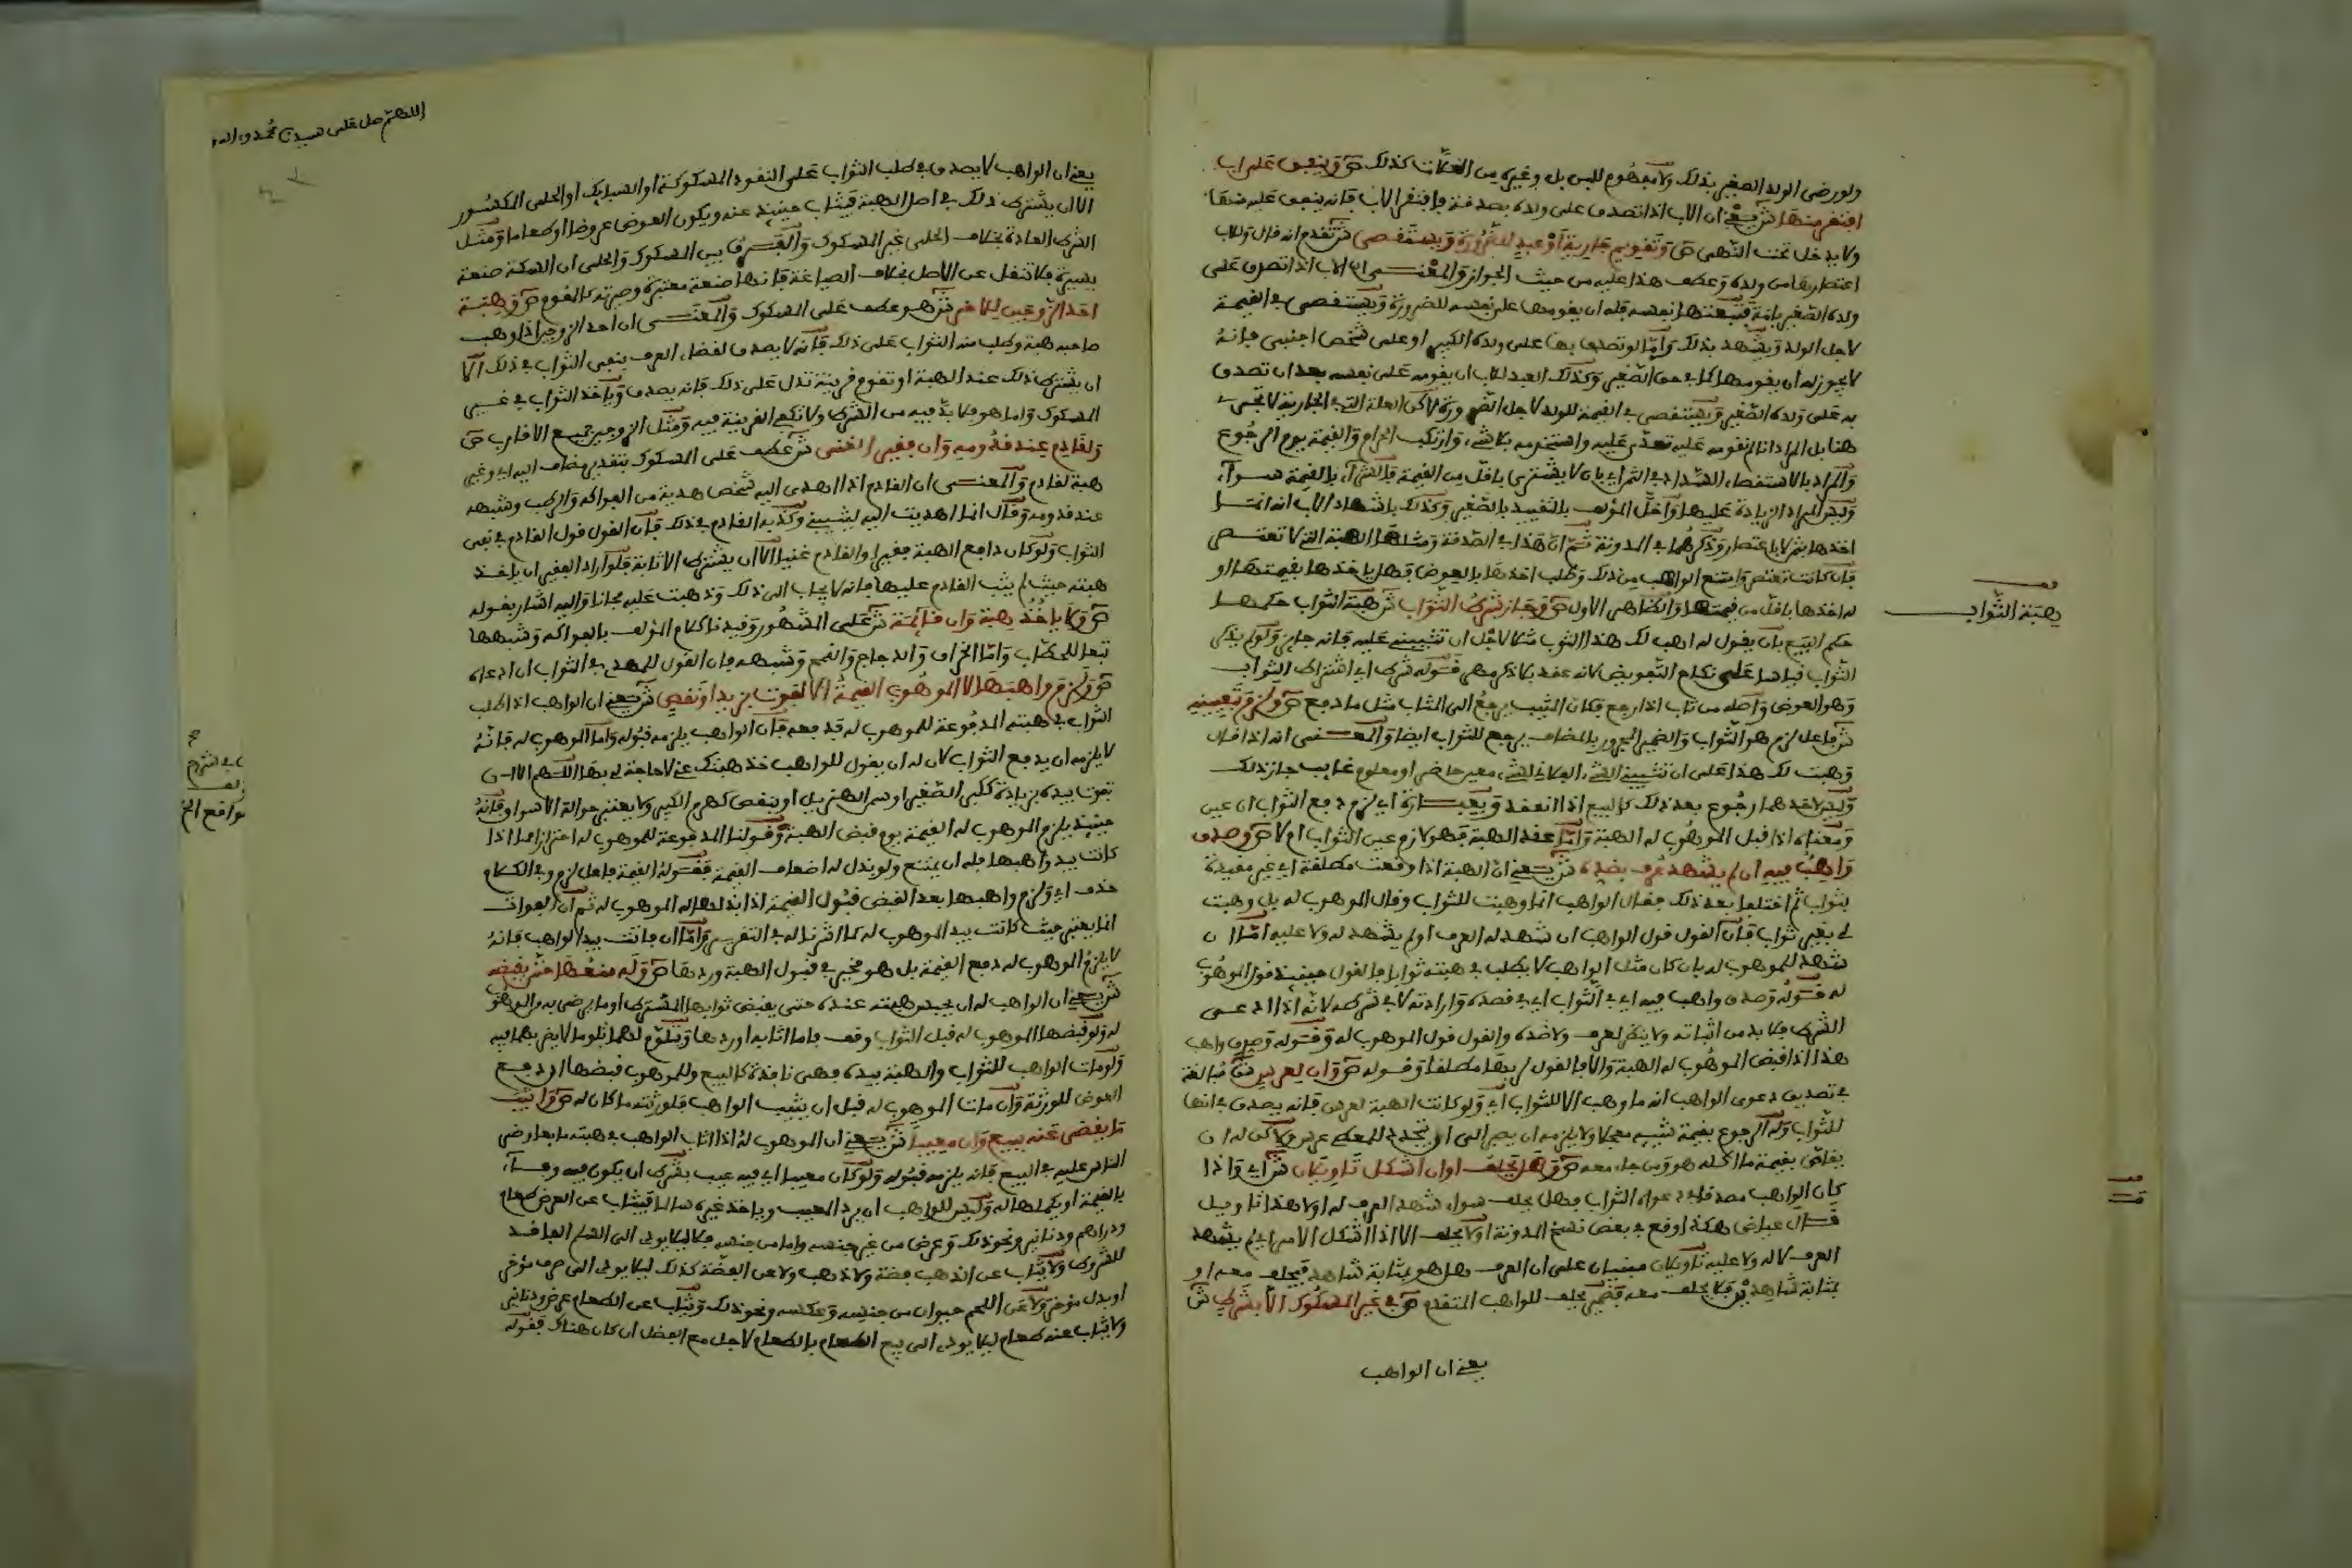 ولو رضي الولد الصغير بذلك ولا مفهوم للبس بل وغيره من الغلات كذلك ص وينفق على اب
افتقر منها ش يعني ان الاب اذا تصدق على ولده بصدقة فافتقر الاب فانه ينفق عليه منها
ولا يدخل تحت النهي ص وتقويم جارية او عبد للضرورة ويستقصي ش تقدم انه قال وللاب
اعتصارها من ولده وعطف هذا عليه من حيث الجواز والمعنى ان الاب اذا تصدق على
ولده الصغير بامة فتبعتها نفسه فله ان يقومها على نفسه للضرورة ويستقصي في القيمة
لاجل الولد ويشهد بذلك واما لو تصدق بها على ولده الكبير او على شخص اجنبي فانه
لا يجوز له ان يقومها كما في حق الصغير وكذلك العبد للاب ان يقومه على نفسه بعد ان تصدق
به على ولده الصغير ويستقصي في القيمة للولد لاجل الضرورة لاكن العلة التي في الجارية لا تجري
هنا بل المراد انا لم نقومه عليه تعدى عليه واستخدمه بلا شيء وارتكب الحرام والقيمة يوم الرجوع
والمراد بالاستقصاء السداد في الثمن اي بان لا يشتري باقل من القيمة فالشراء بالقيمة سواء
وليس المراد الزيادة عليها واخل المؤلف بالتقييد بالصغير وكذلك باشهاد الاب انه انما
اخذها بشراء لا باعتصار وذكرهما في المدونة ثم ان هذا في الصدقة ومثلها الهبة التي لا تعتصر
فان كانت تعتصر وامتنع الواهب من ذلك وطلب اخذها بالعوض فهل ياخذها بقيمتها او
له اخذها باقل من قيمتها والظاهر الاول ص وجاز شرط الثواب ش هبة الثواب حكمها
حكم البيع بان يقول له اهب لك هذا الثوب مثلا لاجل ان تثيبني عليه فانه جايز ولو لم يذكر
الثواب قياسا على نكاح التفويض لانه عقد بلا ذكر مهر فقوله شرط اي اشتراط الثواب
وهو العوض واصله من ثاب اذا رجع فكان المثيب يرجع الى المثاب مثل ما دفع ص ولزم بتعيينه
ش فاعل لزم هو الثواب والضمير المجرور بالمضاف يرجع للثواب ايضا والمعنى انه اذا قال
وهبت لك هذا على ان تثيبني الشيء الفلاني لشيء معين حاضر او معلوم غايب جاز ذلك
وليس لاحدهما رجوع بعد ذلك كالبيع اذا انعقد وبعبارة اي لزم دفع الثواب ان عين
ومعناه اذا قبل الموهوب له الهبة واما عقد الهبة فهو لازم عين الثواب ام لا ص وصدق
واهب فيه ان لم يشهد عرف بضده ش يعني ان الهبة اذا وقعت مطلقة اي غير مقيدة
بثواب ثم اختلفا بعد ذلك فقال الواهب انما وهبت للثواب وقال الموهوب له بل وهبت
لي بغير ثواب فان القول قول الواهب ان شهد له العرف او لم يشهد له ولا عليه اما ان
شهد للموهوب له بان كان مثل الواهب لا يطلب في هبته ثوابا فالقول حينئذ قول الموهوب
له فقوله وصدق واهب فيه اي في الثواب اي في قصده وارادته لا في شرطه لانه اذا ادعى
الشرط فلا بد من اثباته ولا ينظر لعرف ولا ضده والقول قول الموهوب له وقوله وصدق واهب
هذا اذا قبض الموهوب له الهبة والا فالقول لربها مطلقا وقوله ص وان لعرس ش مبالغة
في تصديق دعوى الواهب انه ما وهب الا للثواب اي ولو كانت الهبة لعرس فانه يصدق في انها
للثواب وله الرجوع بقيمة شيبه معجلا ولا يلزمه ان يصبر الى ان يتجدد للمعطى عرس ولاكن له ان
يقاص بقيمة ما اكله هو ومن جاء معه ص وهل يحلف او ان اشكل تاويلان ش اي واذا
كان الواهب مصدقا في دعواه الثواب فهل يحلف سواء شهد العرف له او لا هذا تاويل
قال عياض هكذا وقع في بعض نسخ المدونة او لا يحلف الا اذا اشكل الامر اي لم يشهد
العرف لا له ولا عليه تاويلان مبنيان على ان العرف هل هو بمثابة شاهد فيحلف معه او
بمثابة شاهدين فلا يحلف معه فضمير يحلف للواهب المتقدم ص في غير المسكوك الا بشرط ش
يعني ان الواهب
هبة الثواب
اللهم صل على سيدنا محمد و اله
يعني ان الواهب لا يصدق في طلب الثواب على النقود المسكوكة او السبايك او الحلي المكسور
الا ان يشترط ذلك في اصل الهبة فيثاب حينئذ عنه ويكون العوض عروضا او طعاما ومثل
الشرط العادة بخلاف الحلي غير المسكوك والفرق بين المسكوك والحلي ان السكة صنعة
يسيرة فلا تنقل عن الاصل بخلاف الصياغة فانها صنعة معتبرة وصيرته كالمقوم ص وهبة
احد الزوجين للاخر ش هو عطف على المسكوك والمعنى ان احد الزوجين اذا وهب
صاحبه هبة وطلب منه الثواب على ذلك فانه لا يصدق لفضل العرف بنفي الثواب في ذلك الا
ان يشترط ذلك عند الهبة او تقوم قرينة تدل على ذلك فانه يصدق وياخذ الثواب في غير
المسكوك واما هو فلا بد فيه من الشرط ولا تكفي القرينة فيه ومثل الزوجين جميع الاقارب ص
ولقادم عند قدومه وان فقيرا لغني ش عطف على المسكوك بتقدير مضاف اليه اي وغير
هبة لقادم والمعنى ان القادم اذا اهدى اليه شخص هدية من الفواكه والرطب وشبهه
عند قدومه وقال انما اهديت اليه ليثيبني وكذبه القادم في ذلك فان القول قول القادم في نفي
الثواب ولو كان دافع الهبة فقيرا والقادم غنيا الا ان يشترط الاثابة فلو اراد الفقير ان ياخذ
هبته حيث لم يثب القادم عليها فانه لا يجاب الى ذلك وذهبت عليه مجانا واليه اشار بقوله
ص ولا ياخذ هبته وان قائمة ش على المشهور وقيدنا كلام المؤلف بالفواكه وشبهها
تبعا للحطاب واما الخراف والدجاج والقمح وشبهه فان القول للمهدي في الثواب ان ادعاه
ص ولزم واهبها لا الموهوب القيمة الا لفوت بزيد او نقص ش يعني ان الواهب اذا طلب
الثواب في هبته المدفوعة للموهوب له فدفعه فان الواهب يلزمه قبوله واما الموهوب له فانه
لا يلزمه ان يدفع الثواب لان له ان يقول للواهب خذ هبتك عني لا حاجة لي بها اللهم الا ان
تفوت بيده بزيادة ككبر الصغير او سمن الهزيل او بنقص كهرم الكبير ولا يعتبر حوالة الاسواق فانه
حينئذ يلزم الموهوب له القيمة يوم قبض الهبة وقولنا المدفوعة للموهوب له احترازا مما اذا
كانت بيد واهبها فله ان يمتنع ولو بذل له اضعاف القيمة فقوله القيمة فاعل لزم وفي الكلام
حذف اي ولزم واهبها بعد القبض قبول القيمة اذا بذلها له الموهوب له ثم ان الفوات
انما يعتبر حيث كانت بيد الموهوب له كما اشرنا له في التقرير واما ان فاتت بيد الواهب فانه
لا يلزم الموهوب له دفع القيمة بل هو مخير في قبول الهبة وردها ص وله منعها حتى يقبضه
ش يعني ان الواهب له ان يحبس هبته عنده حتى يقبض ثوابها المشترط او ما يرضى به والموهوب
له ولو قبضها الموهوب له قبل الثواب وقف فاما اثابه او ردها ويتلوم لهما تلوما لا يضر بهما فيه
ولو مات الواهب للثواب والهبة بيده فهي نافذة كالبيع وللموهوب قبضها ان دفع
العوض للورثة وان مات الموهوب له قبل ان يثيب الواهب فلورثته ما كان له ص واثيب
ما يقضى عنه ببيع وان معيبا ش يعني ان الموهوب له اذا اثاب الواهب في هبته ما يعاوض
الناس عليه في البيع فانه يلزمه قبوله ولو كان معيبا اي فيه عيب بشرط ان يكون فيه وفاء
بالقيمة او يكملها له وليس للواهب ان يرد المعيب وياخذ غيره سالما فيثاب عن العرض طعام
ودراهم ودنانير ونحو ذلك وعرض من غير جنسه واما من جنسه فلا ليلا يودي الى السلم الفاقد
للشروط ولا يثاب عن الذهب فضة ولا ذهب ولا عن الفضة كذلك ليلا يودي الى صرف موخر
او بدل موخر ولا عن اللحم حيوان من جنسه وعكسه ونحو ذلك ويثاب عن الطعام عرض ودنانير
ولا يثاب عنه طعام ليلا يودي الى بيع الطعام بالطعام لاجل مع الفضل ان كان هناك فقوله